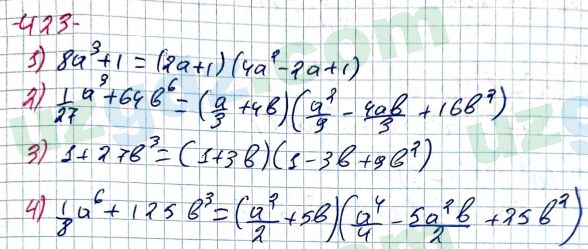 -423-
1) 8a³+1=(2a+1)(4a²-2a+1)
2) 1/27 a⁹+64b⁶=(a/3+4b)(a²/9-4ab/3+16b²)
3) 1+27b³=(1+3b)(1-3b+9b²)
4) 1/8 a⁶+125b³=(a²/2+5b)(a⁴/4-5a²b/2+25b²)